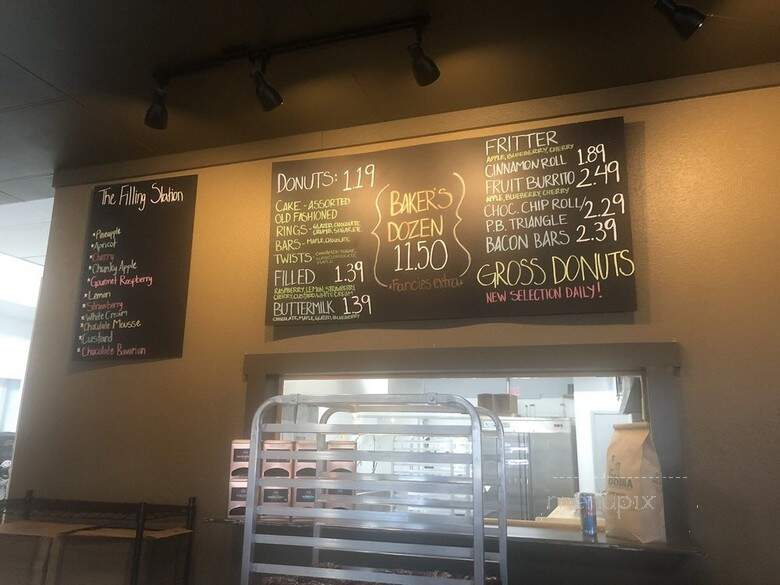 The Filling Station
*Pineapple
*Apricot
*Cherry
*Chunky Apple
*Gourmet Raspberry
*Lemon
*Strawberry
*White Cream
*Chocolate Mousse
*Custard
*Chocolate Bavarian
DONUTS: 1.19
CAKE - ASSORTED
OLD FASHIONED
RINGS - GLAZED, CHOCOLATE
CRUMB, SUGAR, ETC
BARS - MAPLE, CHOCOLATE
TWISTS
FILLED 1.39
RASPBERRY, LEMON, STRAWBERRY
CHERRY, CUSTARD, WHITE CREAM
BUTTERMILK 1.39
CHOCOLATE, MAPLE, GLAZED, BLUEBERRY
BAKER'S
DOZEN
11.50
*Fancies extra*
FRITTER
APPLE, BLUEBERRY, CHERRY
CINNAMON ROLL 1.89
FRUIT BURRITO 2.49
APPLE, BLUEBERRY, CHERRY
CHOC. CHIP ROLL/
P.B. TRIANGLE 2.29
BACON BARS 2.39
GROSS DONUTS
NEW SELECTION DAILY!
menupix